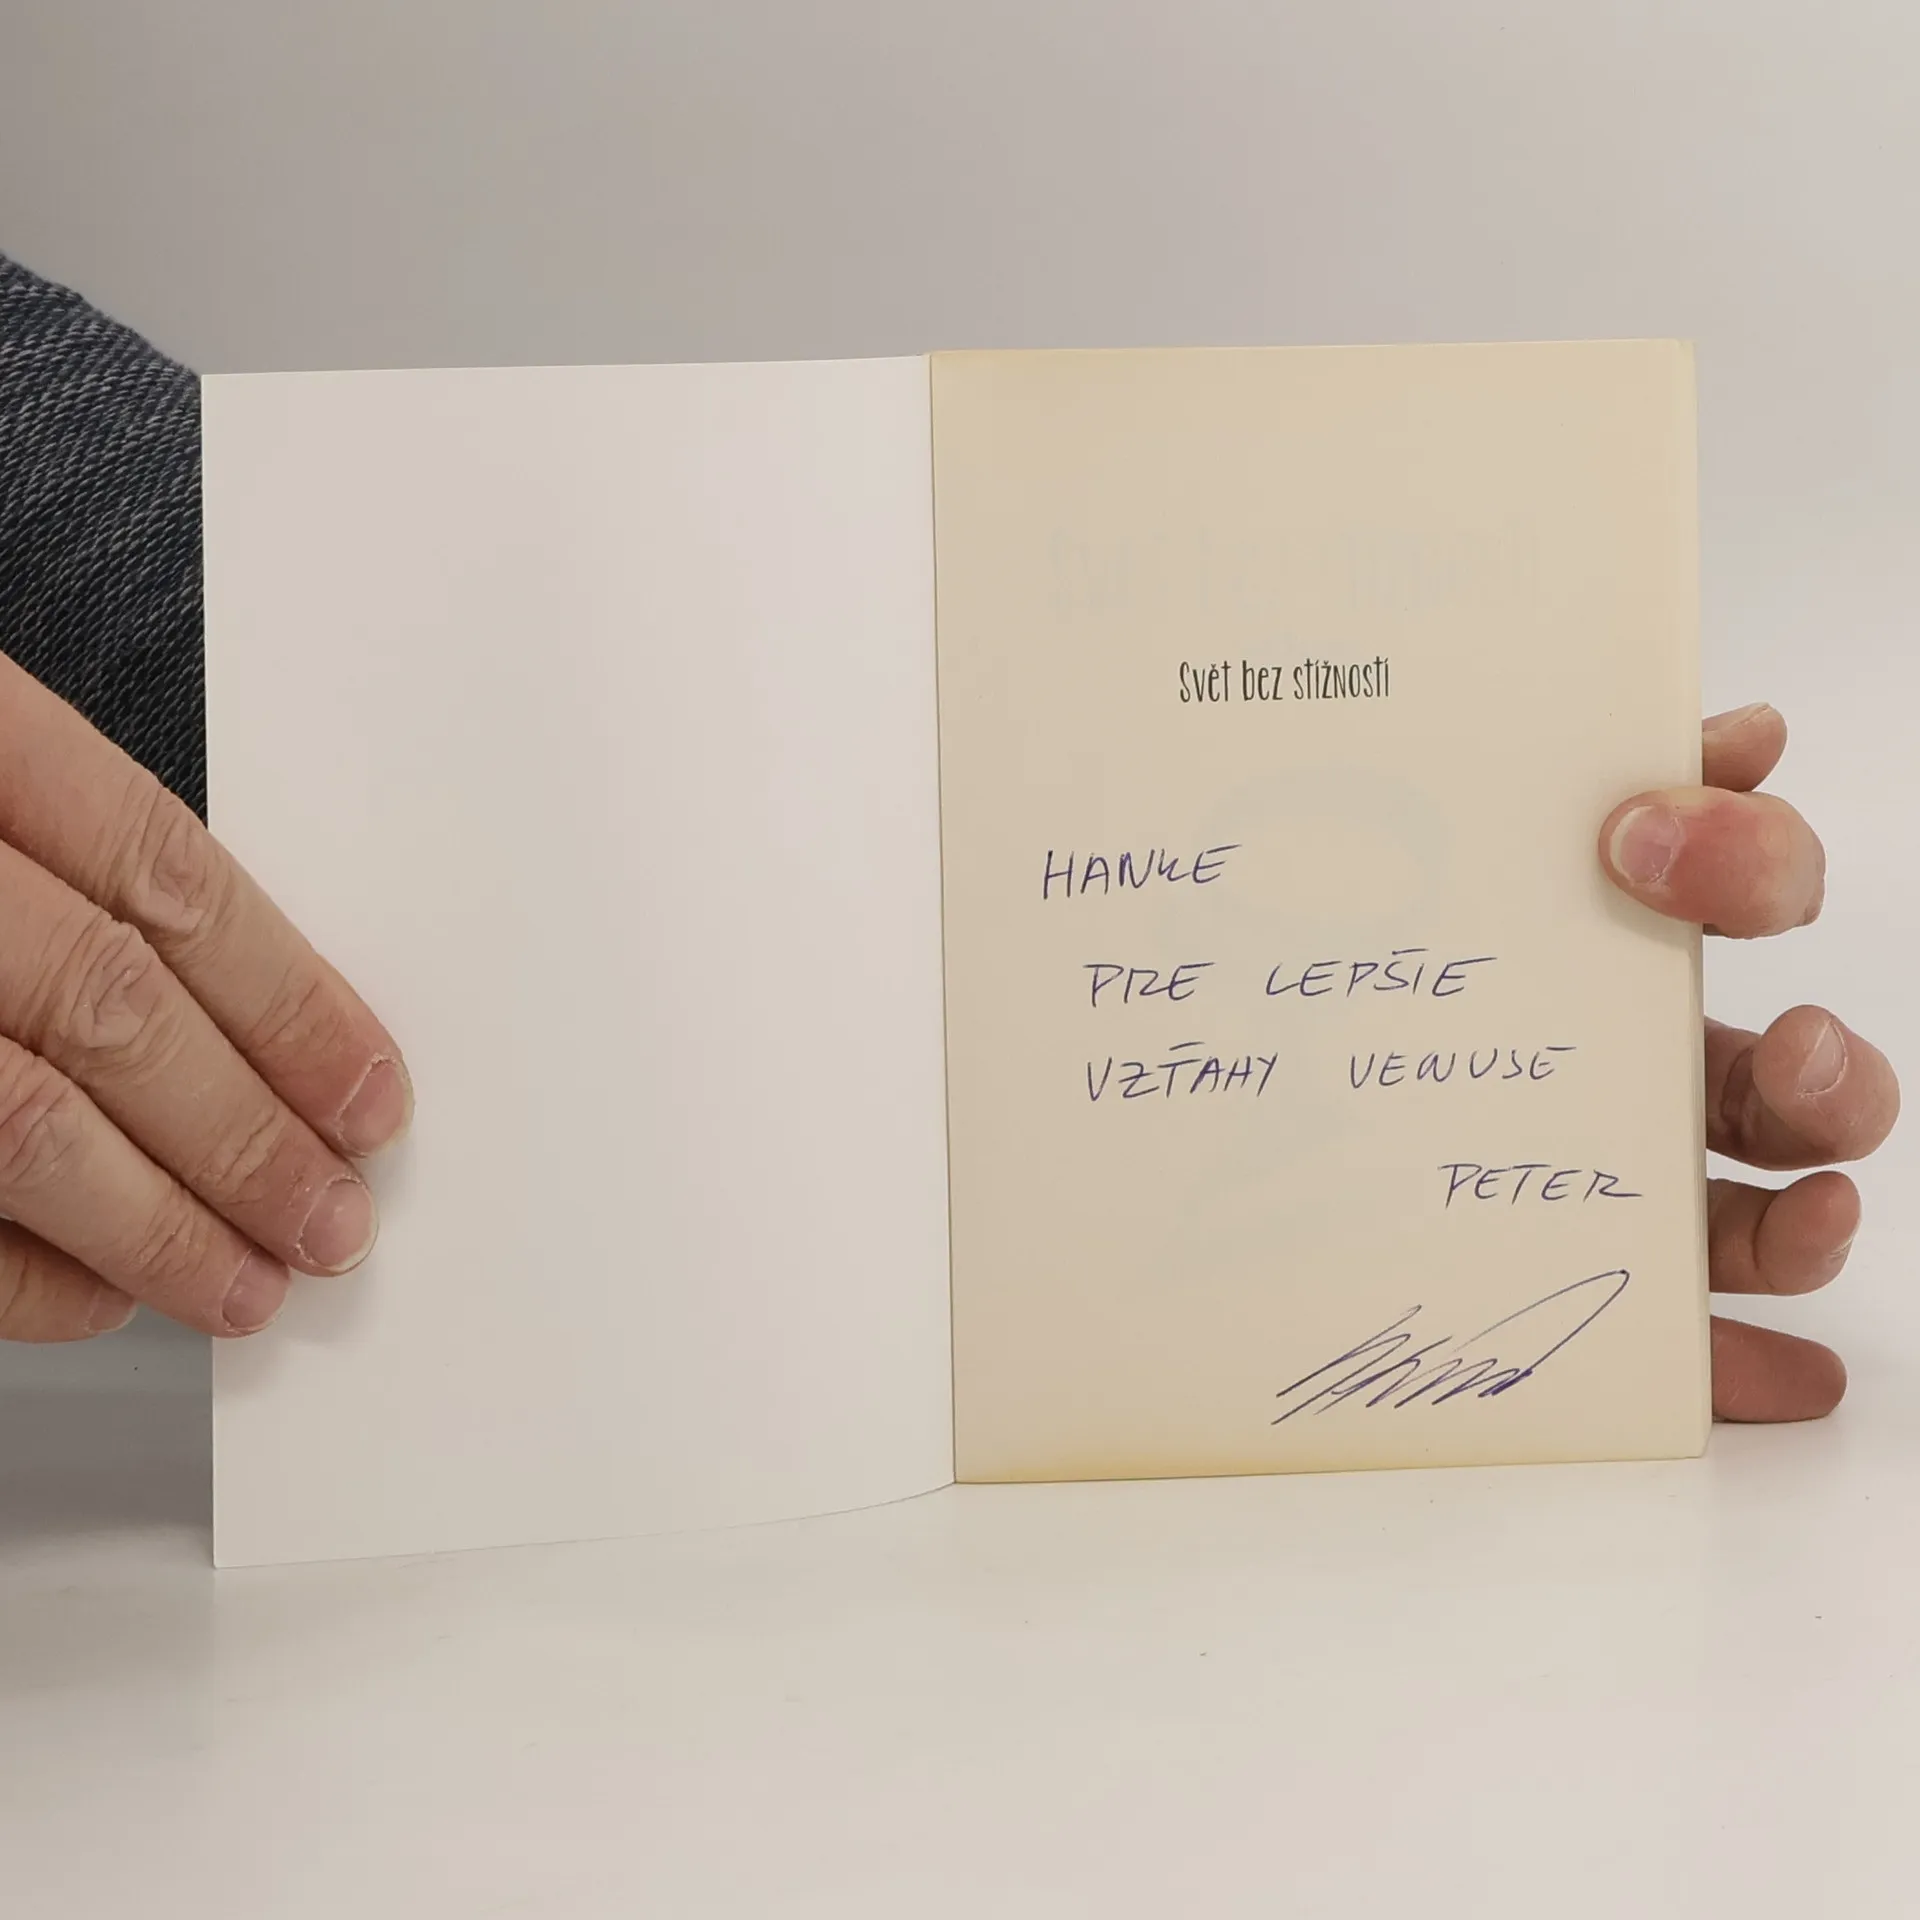 Svět bez stížností
HANKE
PRE LEPŠIE
VZŤAHY VENUSE
PETER